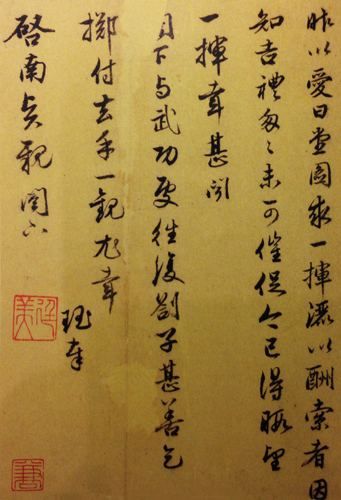 昨以愛日堂圖求一揮灑以酬索者因
知吉禮匆々未可催促今已得暇望
一揮幸甚聞
月下与武功往復劄子甚善乞
擲付去手一觀尤幸
珏奉
啓南親閣下
廷美